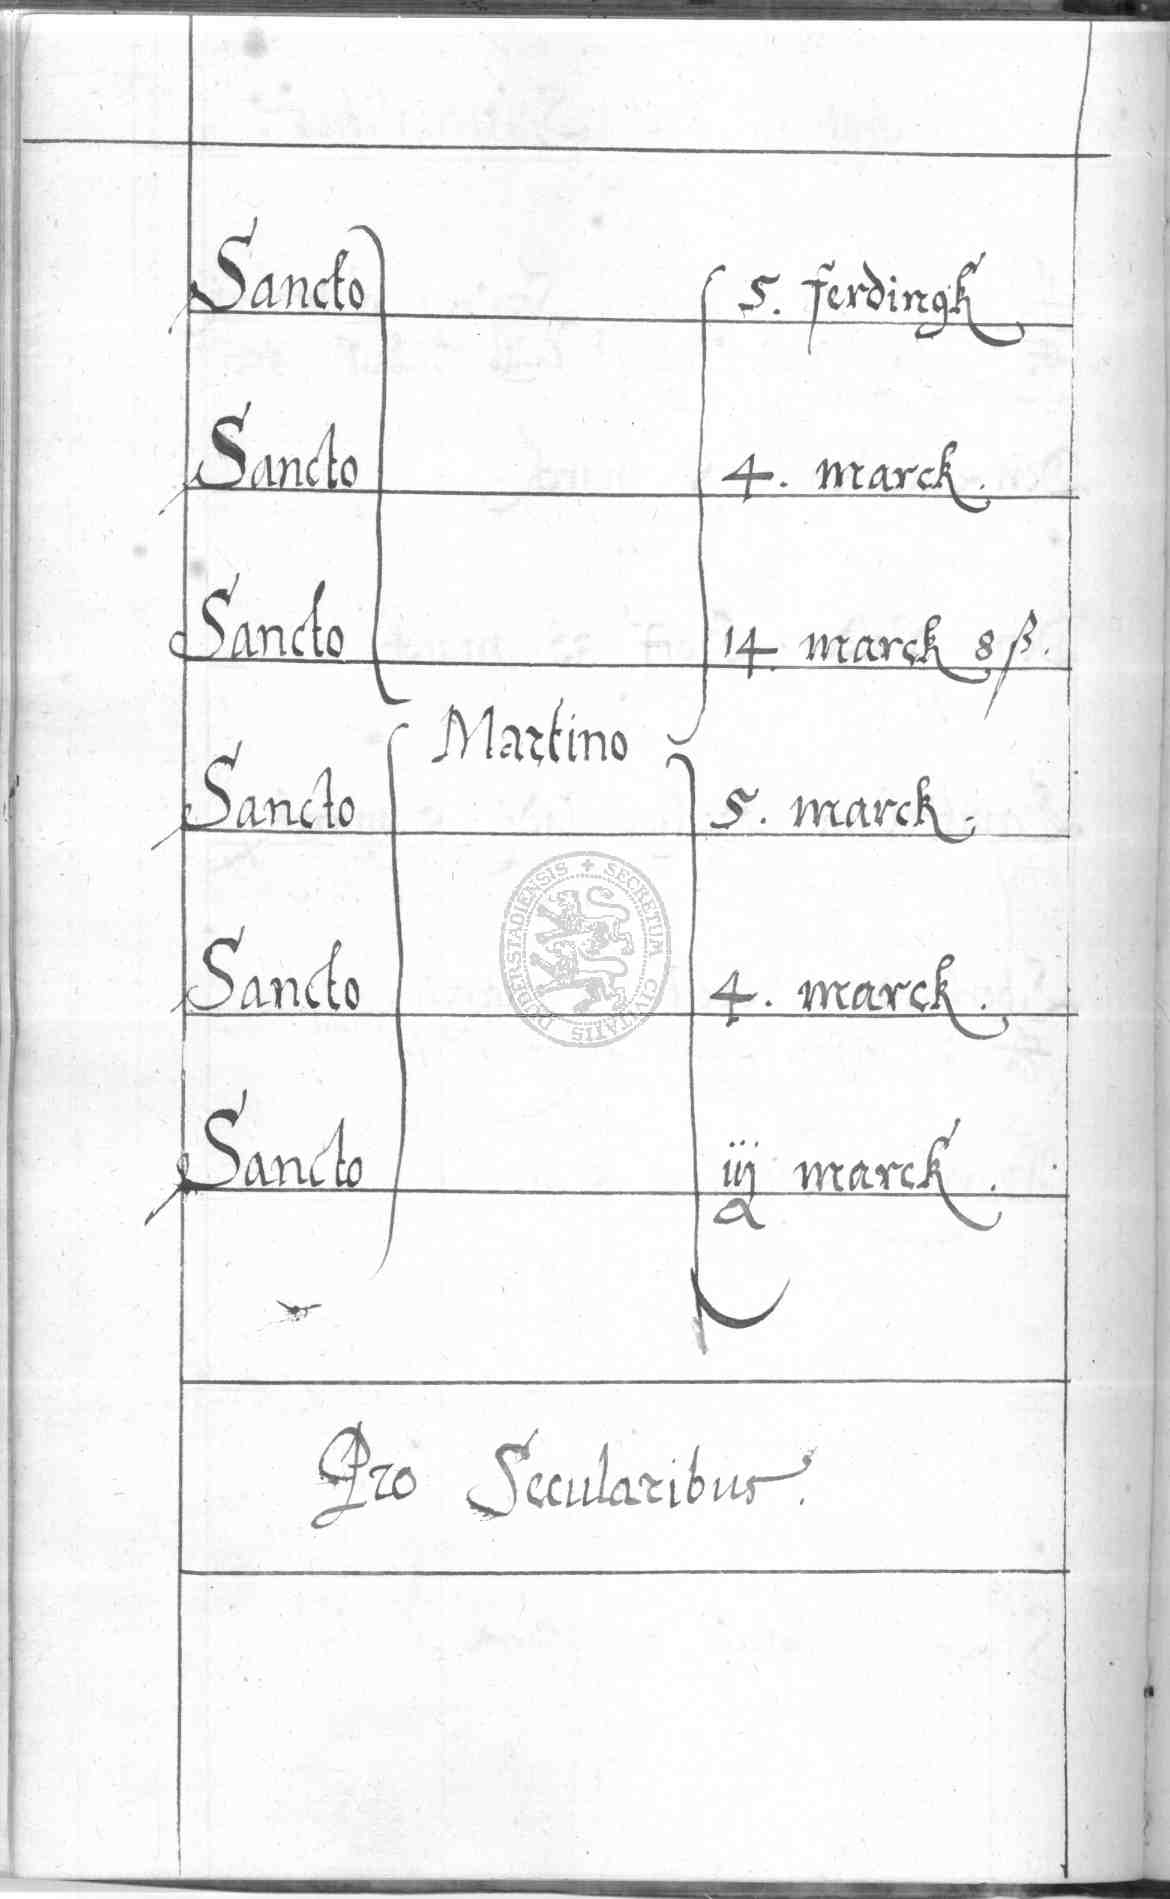 Sancto 5. ferdingk
Sancto 4. marck.
Sancto 14 marck 8 ß.
Martino
Sancto 5. marck.
Sancto 4. marck.
SECRETUM CIVITATIS DUDERSTADIENSIS
Sancto iij marck.
Pro Secularibus.